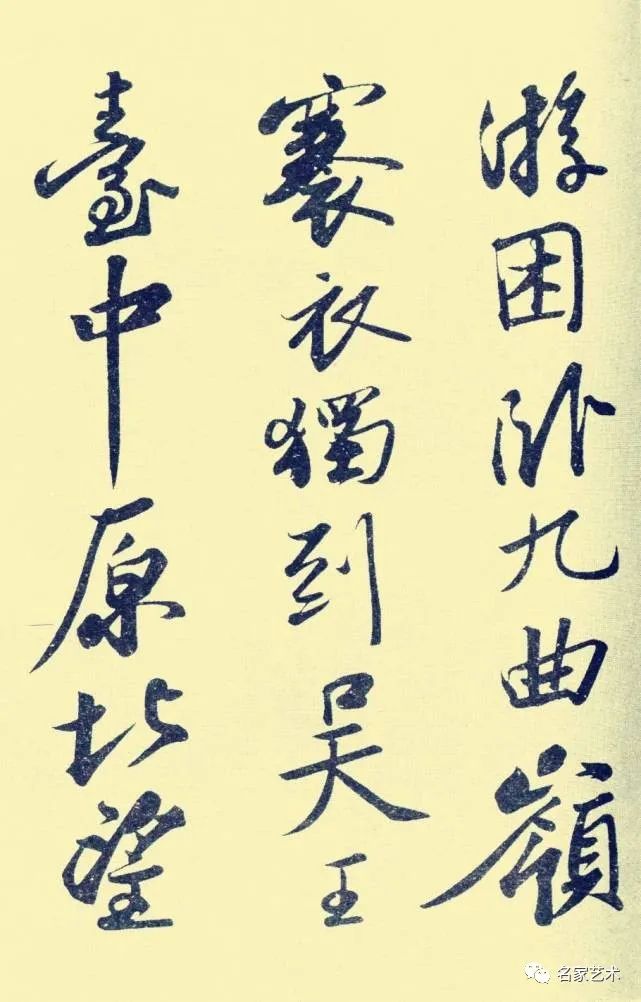 游困卧九曲嶺
褰衣獨到吴王
臺中原北望
名家艺术